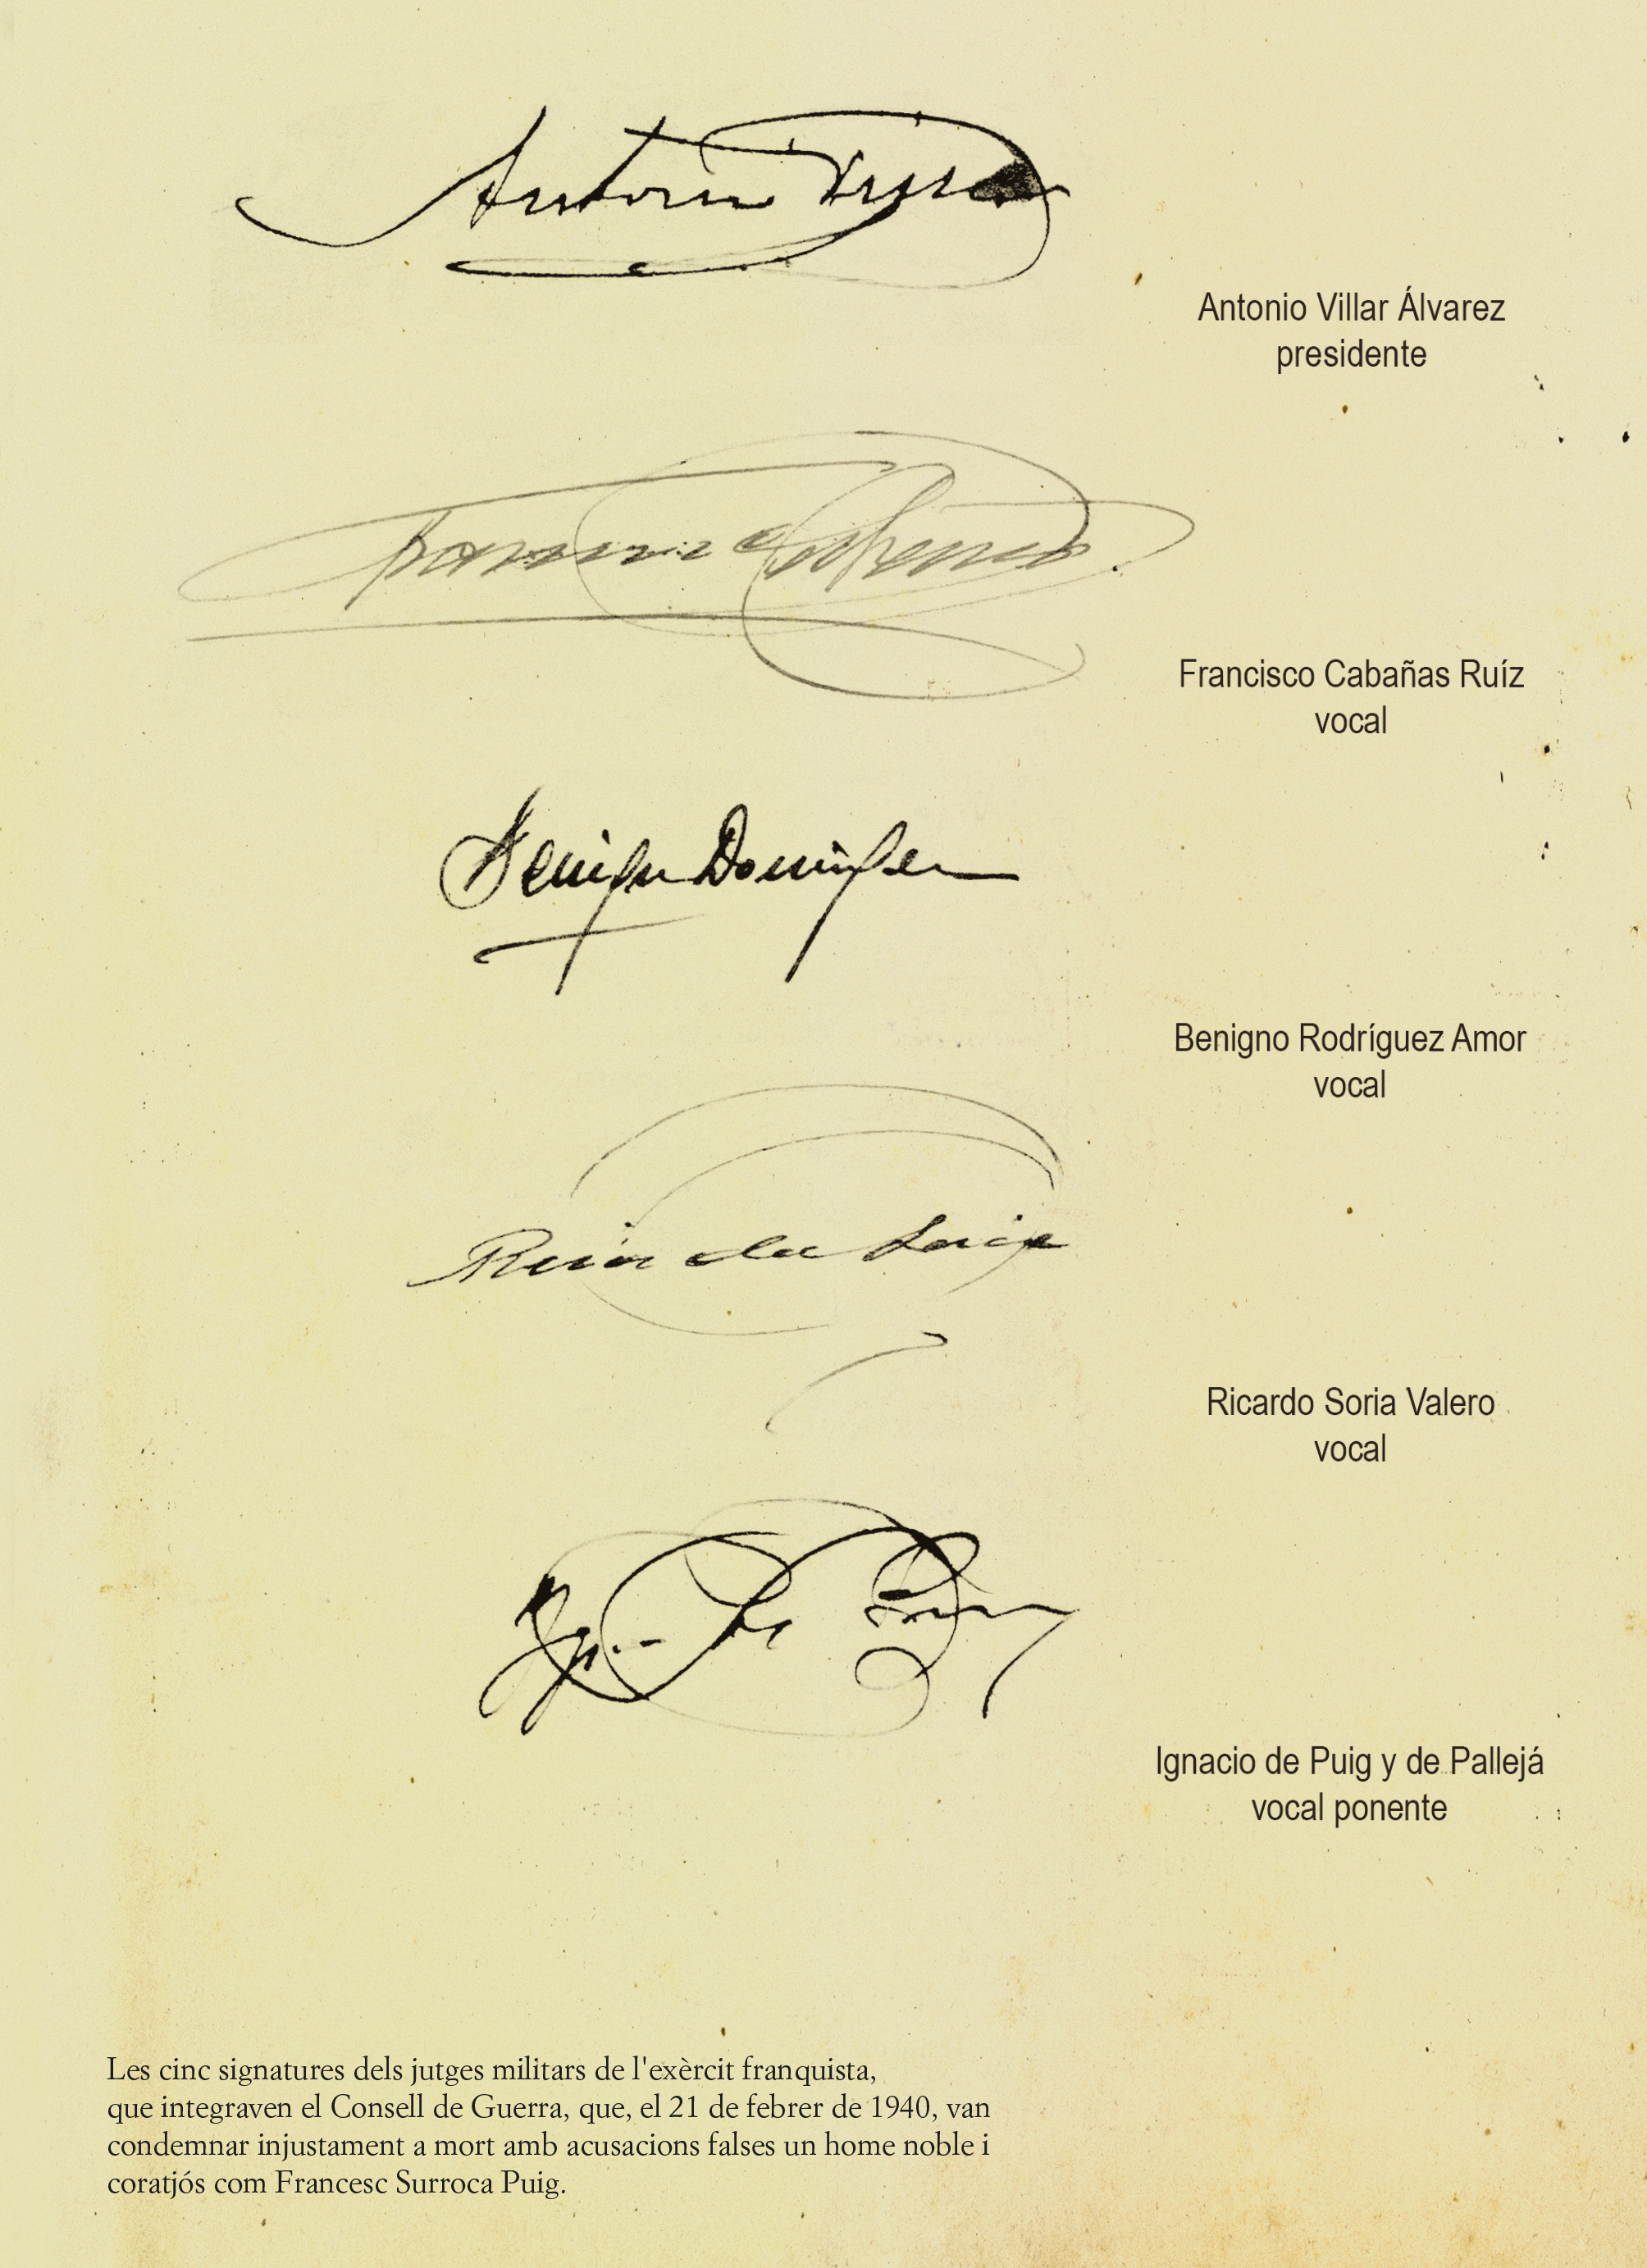 Antonio Villar
Antonio Villar Álvarez
presidente
Francisco Cabañas Ruíz
vocal
Benigno
Benigno Rodríguez Amor
vocal
Ricardo Soria Valero
vocal
Ignacio de Puig y de Pallejá
vocal ponente
Les cinc signatures dels jutges militars de l'exèrcit franquista,
que integraven el Consell de Guerra, que, el 21 de febrer de 1940, van
condemnar injustament a mort amb acusacions falses un home noble i
coratjós com Francesc Surroca Puig.